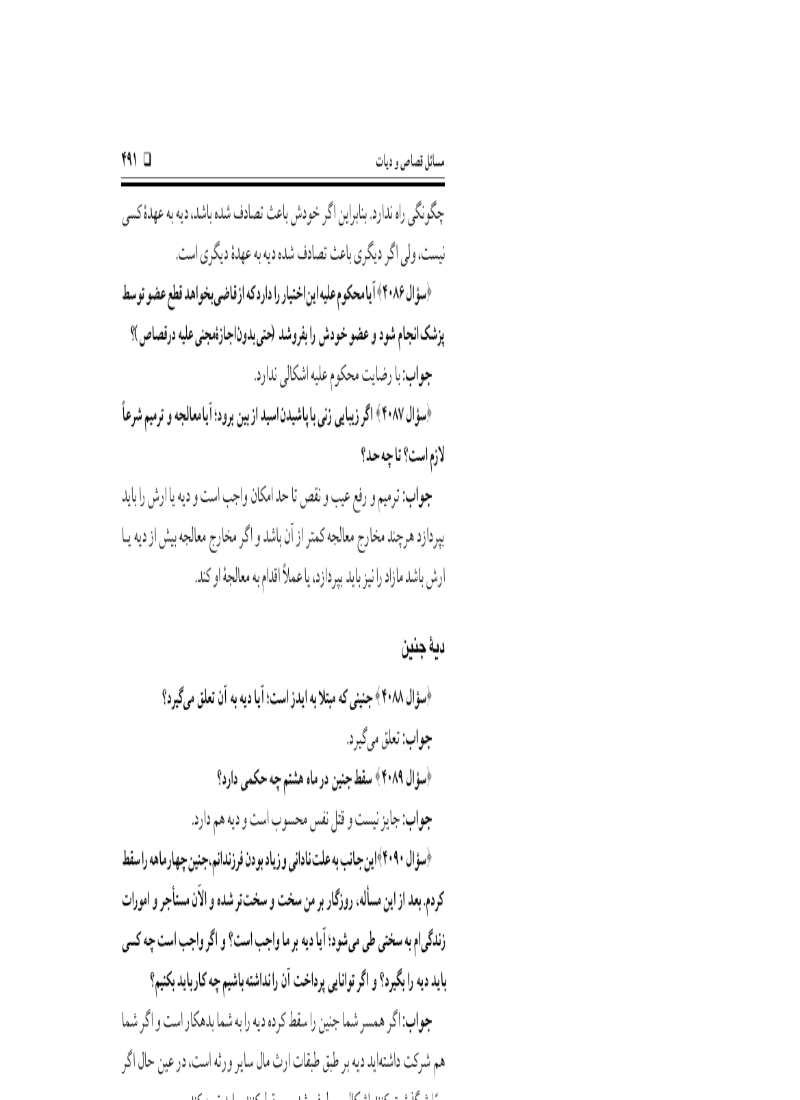 مسائل قصاص و دیات ❑ ۴۹۱
چگونگی راه ندارد. بنابراین اگر خودش باعث تصادف شده باشد، دیه به عهدهٔ کسی
نیست، ولی اگر دیگری باعث تصادف شده دیه به عهدهٔ دیگری است.
﴿سؤال ۴۰۸۶﴾ آیا محکوم علیه این اختیار را دارد که از قاضی بخواهد قطع عضو توسط
پزشک انجام شود و عضو خودش را بفروشد (حتی بدون اجازهٔ مجنی علیه در قصاص)؟
جواب: با رضایت محکوم علیه اشکالی ندارد.
﴿سؤال ۴۰۸۷﴾ اگر زیبایی زنی با پاشیدن اسید از بین برود؛ آیا معالجه و ترمیم شرعاً
لازم است؟ تا چه حد؟
جواب: ترمیم و رفع عیب و نقص تا حد امکان واجب است و دیه یا ارش را باید
بپردازد هرچند مخارج معالجه کمتر از آن باشد و اگر مخارج معالجه بیش از دیه یا
ارش باشد مازاد را نیز باید بپردازد، یا عملاً اقدام به معالجهٔ او کند.
دیهٔ جنین
﴿سؤال ۴۰۸۸﴾ جنینی که مبتلا به ایدز است؛ آیا دیه به آن تعلق می‌گیرد؟
جواب: تعلق می‌گیرد.
﴿سؤال ۴۰۸۹﴾ سقط جنین در ماه هشتم چه حکمی دارد؟
جواب: جایز نیست و قتل نفس محسوب است و دیه هم دارد.
﴿سؤال ۴۰۹۰﴾ این جانب به علت نادانی و زیاد بودن فرزندانم، جنین چهار ماهه را سقط
کردم. بعد از این مسأله، روزگار بر من سخت و سخت‌تر شده و الآن مستأجر و امورات
زندگی‌ام به سختی طی می‌شود؛ آیا دیه بر ما واجب است؟ و اگر واجب است چه کسی
باید دیه را بگیرد؟ و اگر توانایی پرداخت آن را نداشته باشیم چه کار باید بکنیم؟
جواب: اگر همسر شما جنین را سقط کرده دیه را به شما بدهکار است و اگر شما
هم شرکت داشته‌اید دیه بر طبق طبقات ارث مال سایر ورثه است، در عین حال اگر